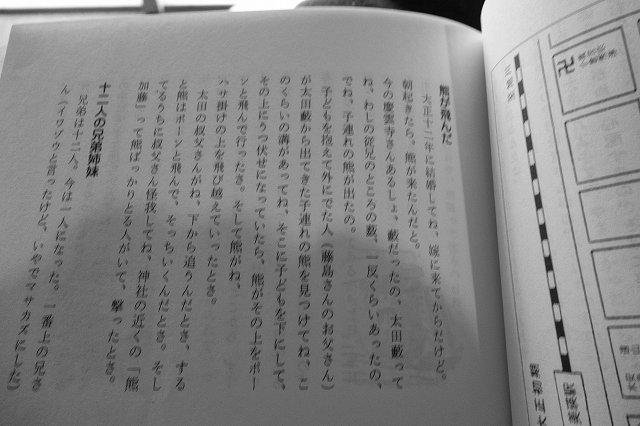 熊が飛んだ
大正十二年に結婚してね、嫁に来てからだけど。
朝起きたら、熊が来たんだと。
今の慶雲寺さんあるしょ、藪だったの。太田藪って
ね、わしの従兄のところの藪、一反くらいあったの、
でね、子連れの熊が出たの。
子どもを抱えて外にでた人（藤島さんのお父さん）
が太田藪から出てきた子連れの熊を見つけてね、こ
のくらいの溝があってね、そこに子どもを下にして、
その上にうつ伏せになっていたら、熊がその上をポー
ンと飛んで行ったさ。そして熊がね、
ハサ掛けの上を飛び越えていったとさ。
太田の叔父さんがね、下から追うんだとさ、する
と熊はポーンと飛んで、そっちいくんだとさ。そし
てるうちに叔父さん怪我してね、神社の近くの「熊
加藤」って熊ばっかりとる人がいて、撃ったとさ。
十二人の兄弟姉妹
兄弟は十二人。今は一人になった。一番上の兄さ
ん（イワゾウと言ったけど、いやでマサカズにした）
大正初期
美瑛駅